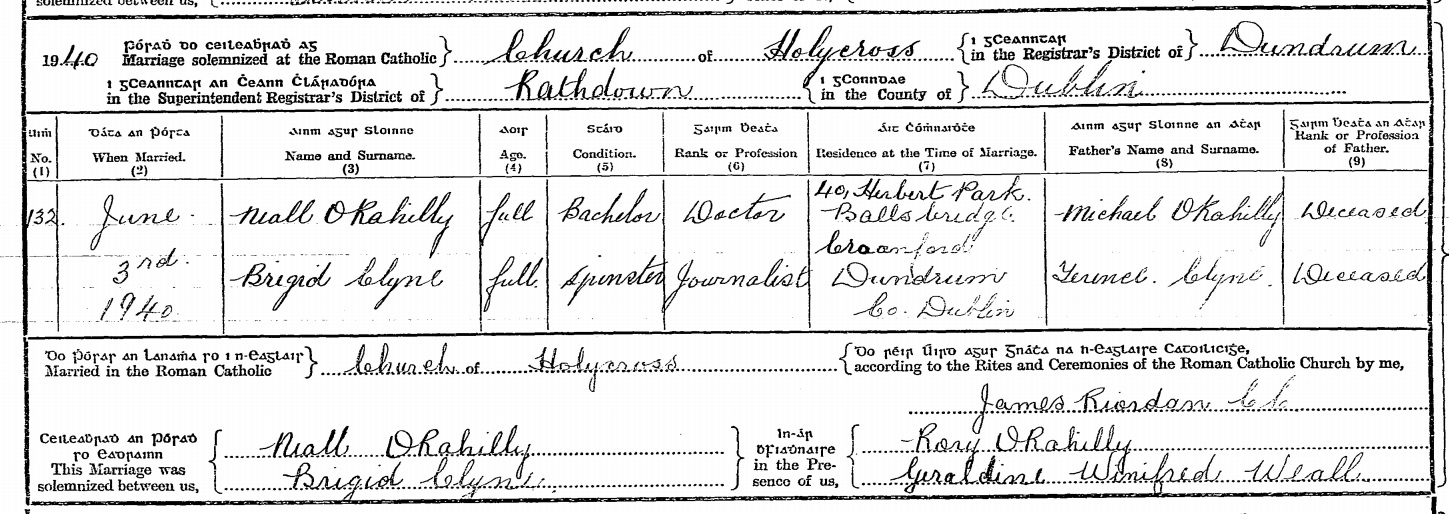 solemnized between us,
1940 pósaḋ do ceileaḃraḋ ag Marriage solemnized at the Roman Catholic } Church of Holycross { i gceanntar in the Registrar's District of } Dundrum
i gceanntar an Ċeann Ċláraḋóra in the Superintendent Registrar's District of } Rathdown { i gConndae in the County of } Dublin
Uiṁ No. (1)
Dáta an Ṗósta When Married. (2)
Ainm agus Sloinne Name and Surname. (3)
Aois Age. (4)
Stáid Condition. (5)
Gairm Ḃeaṫa Rank or Profession (6)
Áit Ċóṁnaiḋṫe Residence at the Time of Marriage. (7)
Ainm agus Sloinne an Aṫar Father's Name and Surname. (8)
Gairm Ḃeaṫa an Aṫar Rank or Profession of Father. (9)
132. June 3rd 1940
Niall O Rahilly full Bachelor Doctor 40, Herbert Park. Ballsbridge. Michael O Rahilly Deceased
Brigid Clyne full. Spinster Journalist Craanford Dundrum Co. Dublin Terence Clyne. Deceased
Do pósaḋ an lanaṁa so i n-eaglais Married in the Roman Catholic } Church of Holycross { Do réir Uird agus Gnáṫa na h-eaglaise Catoilicíġe, according to the Rites and Ceremonies of the Roman Catholic Church by me,
James Riordan C.C.
Ceileaḃraḋ an pósaḋ so eadrainn This Marriage was solemnized between us, { Niall O Rahilly
Brigid Clyne.
In-ár ḃfiaḋnaire in the Presence of us, { Rory O Rahilly
Geraldine Winifred Weall